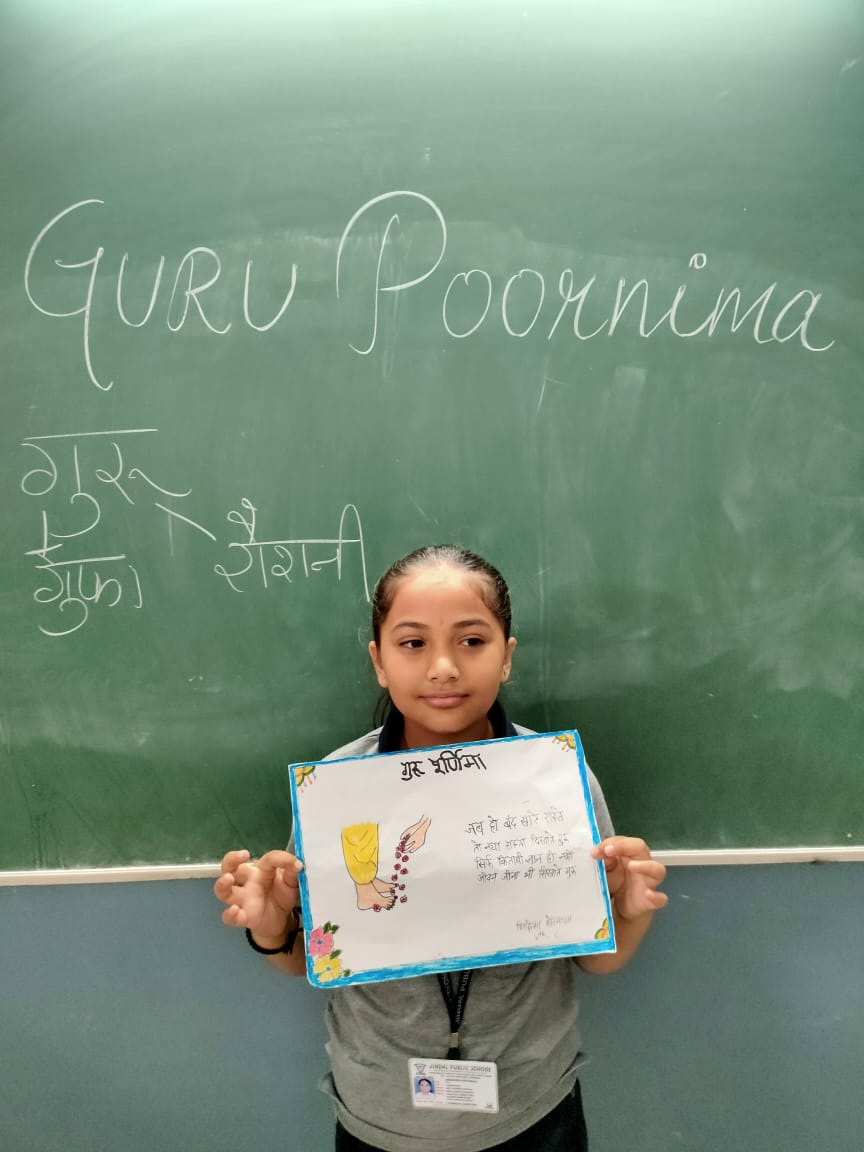 GURU Poornima
गुरू
गुफा रौशनी
गुरू पूर्णिमा
जब हो बंद सारे रास्ते
तो नया रास्ता दिखाते गुरू
सिर्फ किताबी ज्ञान ही नही
जीवन जीना भी सिखाते गुरू
JINDAL PUBLIC SCHOOL
JINDAL PUBLIC